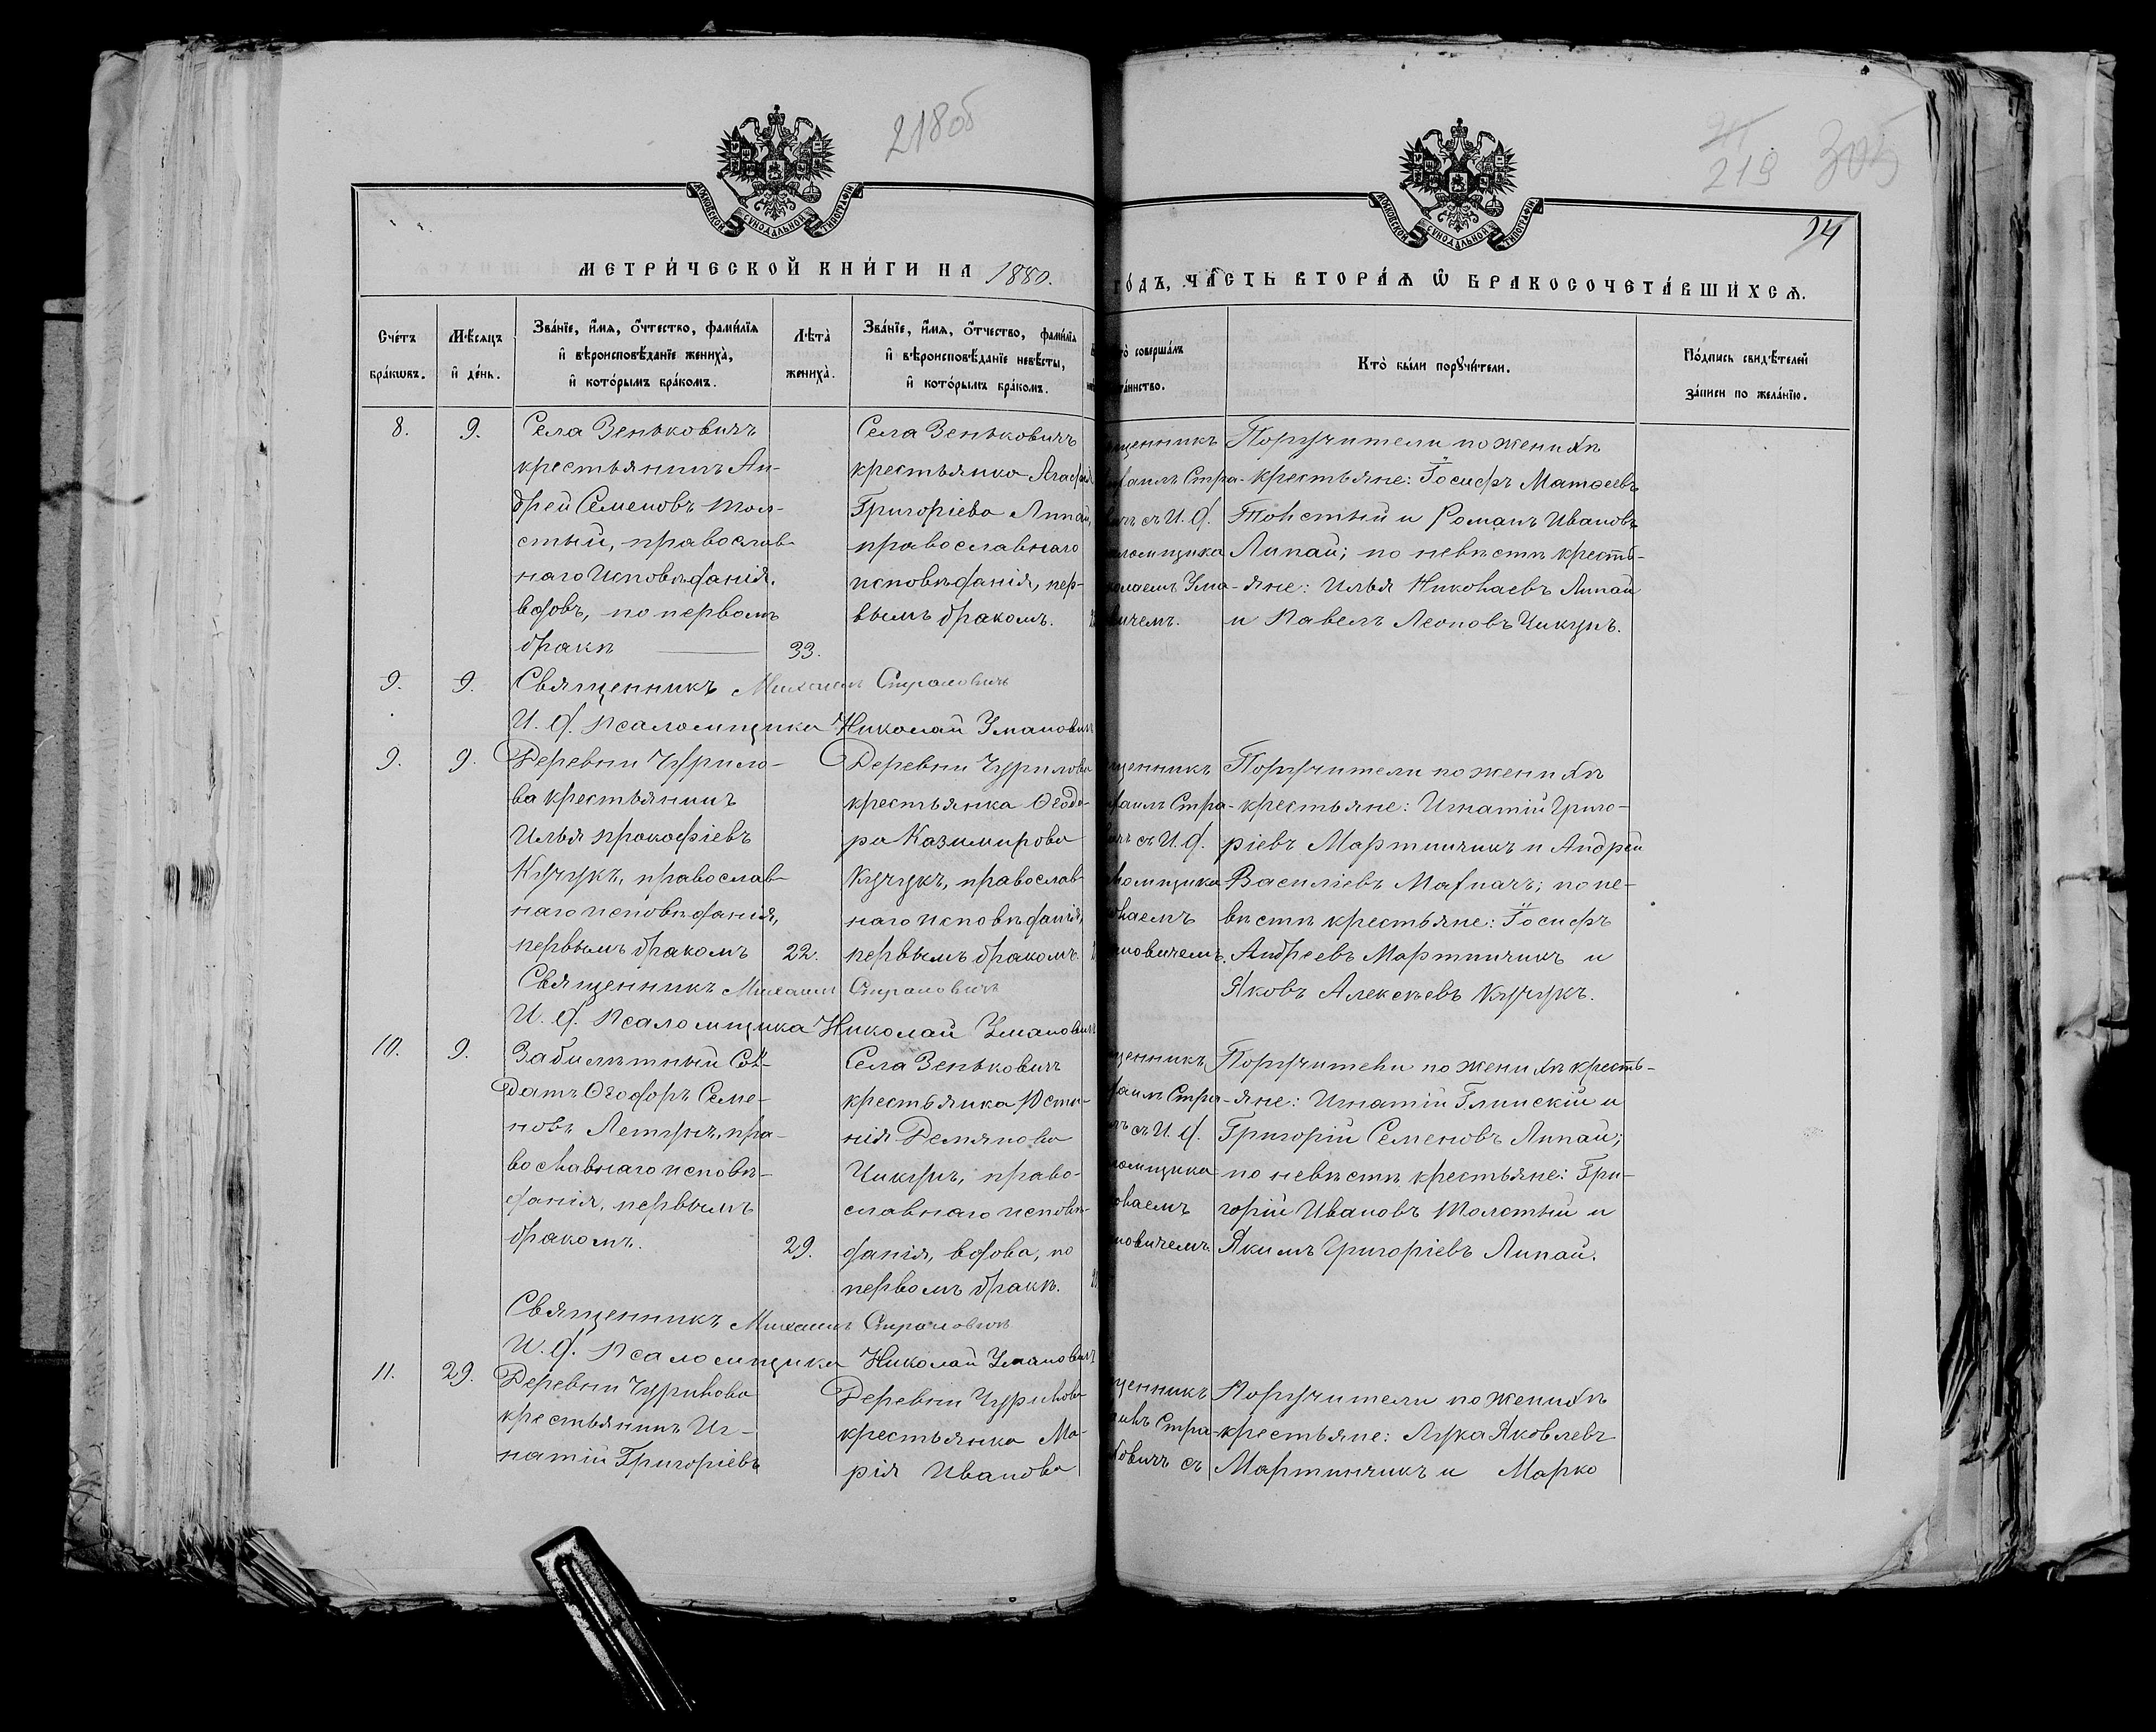 218об
219
305
24
МОСКОВСКОЙ СѴНОДАЛЬНОЙ ТИПОГРАФІИ
МОСКОВСКОЙ СѴНОДАЛЬНОЙ ТИПОГРАФІИ
МЕТРИ́ЧЕСКОЙ КНИ́ГИ НА 1880.
ГО́ДЪ, ЧА́СТЬ ВТОРА́Ѧ Ѡ БРАКОСОЧЕТА́ВШИХСѦ.
Сче́тъ
бра́кѡвъ.
Мѣ́сяцъ
и҆ де́нь.
Зва́нїе, и҆́мѧ, ѻ҆́тчество, фами́лїѧ
и҆ вѣроисповѣ́данїе жениха̀,
и҆ кото́рымъ бра́комъ.
Лѣ́та
жениха̀.
Зва́нїе, и҆́мѧ, ѻ҆́тчество, фами́лїѧ
и҆ вѣроисповѣ́данїе невѣ́сты,
и҆ кото́рымъ бра́комъ.
совершáлъ
та́инство.
Кто̀ бы́ли порꙋчи́тели.
По́дпись свидѣ́телей
за́писи по жела́нїю.
8.
9.
Села Зеньковичъ
крестьянинъ Ан-
дрей Семеновъ Тол-
стый, православ-
наго исповѣданія.
вдовъ, по первомъ
бракѣ
33.
Села Зеньковичъ
крестьянка Агафія
Григоріева Липай,
православнаго
исповѣданія, пер-
вымъ бракомъ.
щенникъ
хаилъ Стра-
чъ съ И. д.
ломщика
колаемъ Ума-
вичемъ.
Поручители по женихѣ
крестьяне: Іосифъ Матѳеевъ
Толстый и Романъ Ивановъ
Липай; по невѣстѣ кресть-
яне: Илья Николаевъ Липай
и Павелъ Леоновъ Чикунъ.
9.
9.
Священникъ Михаилъ Страховичъ
И. д. Псаломщика Николай Умановичъ
9.
9.
Деревни Чурило-
ва крестьянинъ
Илья Прокофіевъ
Кучукъ, православ-
наго исповѣданія,
первымъ бракомъ
22.
Деревни Чурилова
крестьянка Ѳеодо-
ра Казимирова
Кучукъ, православ-
наго исповѣданія,
первымъ бракомъ.
щенникъ
хаилъ Стра-
чъ съ И. д.
ломщика
олаемъ
ановичемъ.
Поручители по женихѣ
крестьяне: Игнатій Григо-
ріевъ Мартинчикъ и Андрей
Василіевъ Махначъ; по не-
вѣстѣ крестьяне: Іосифъ
Андреевъ Мартинчикъ и
Яковъ Алексѣевъ Кучукъ.
Священникъ Михаилъ Страховичъ
И. д. Псаломщика Николай Умановичъ
10.
9.
Забилѣтный Сол-
датъ Ѳеодоръ Семе-
новъ Летунъ, пра-
вославнаго исповѣ-
данія, первымъ
бракомъ.
29.
Села Зеньковичъ
крестьянка Юсти-
нія Демянова
Чикунъ, право-
славнаго исповѣ-
данія, вдова, по
первомъ бракѣ.
щенникъ
хаилъ Стра-
чъ съ И. д.
ломщика
олаемъ
ановичемъ.
Поручители по женихѣ кресть-
яне: Игнатій Глинскій и
Григорій Семеновъ Липай;
по невѣстѣ крестьяне: Гри-
горій Ивановъ Толстый и
Якимъ Григоріевъ Липай.
Священникъ Михаилъ Страховичъ
И. д. Псаломщика Николай Умановичъ
11.
29.
Деревни Чурилова
крестьянинъ Иг-
натій Григоріевъ
Деревни Чурилова
крестьянка Ма-
рія Иванова
щенникъ
аилъ Стра-
ховичъ съ
Поручители по женихѣ
крестьяне: Лука Яковлевъ
Мартинчикъ и Марко